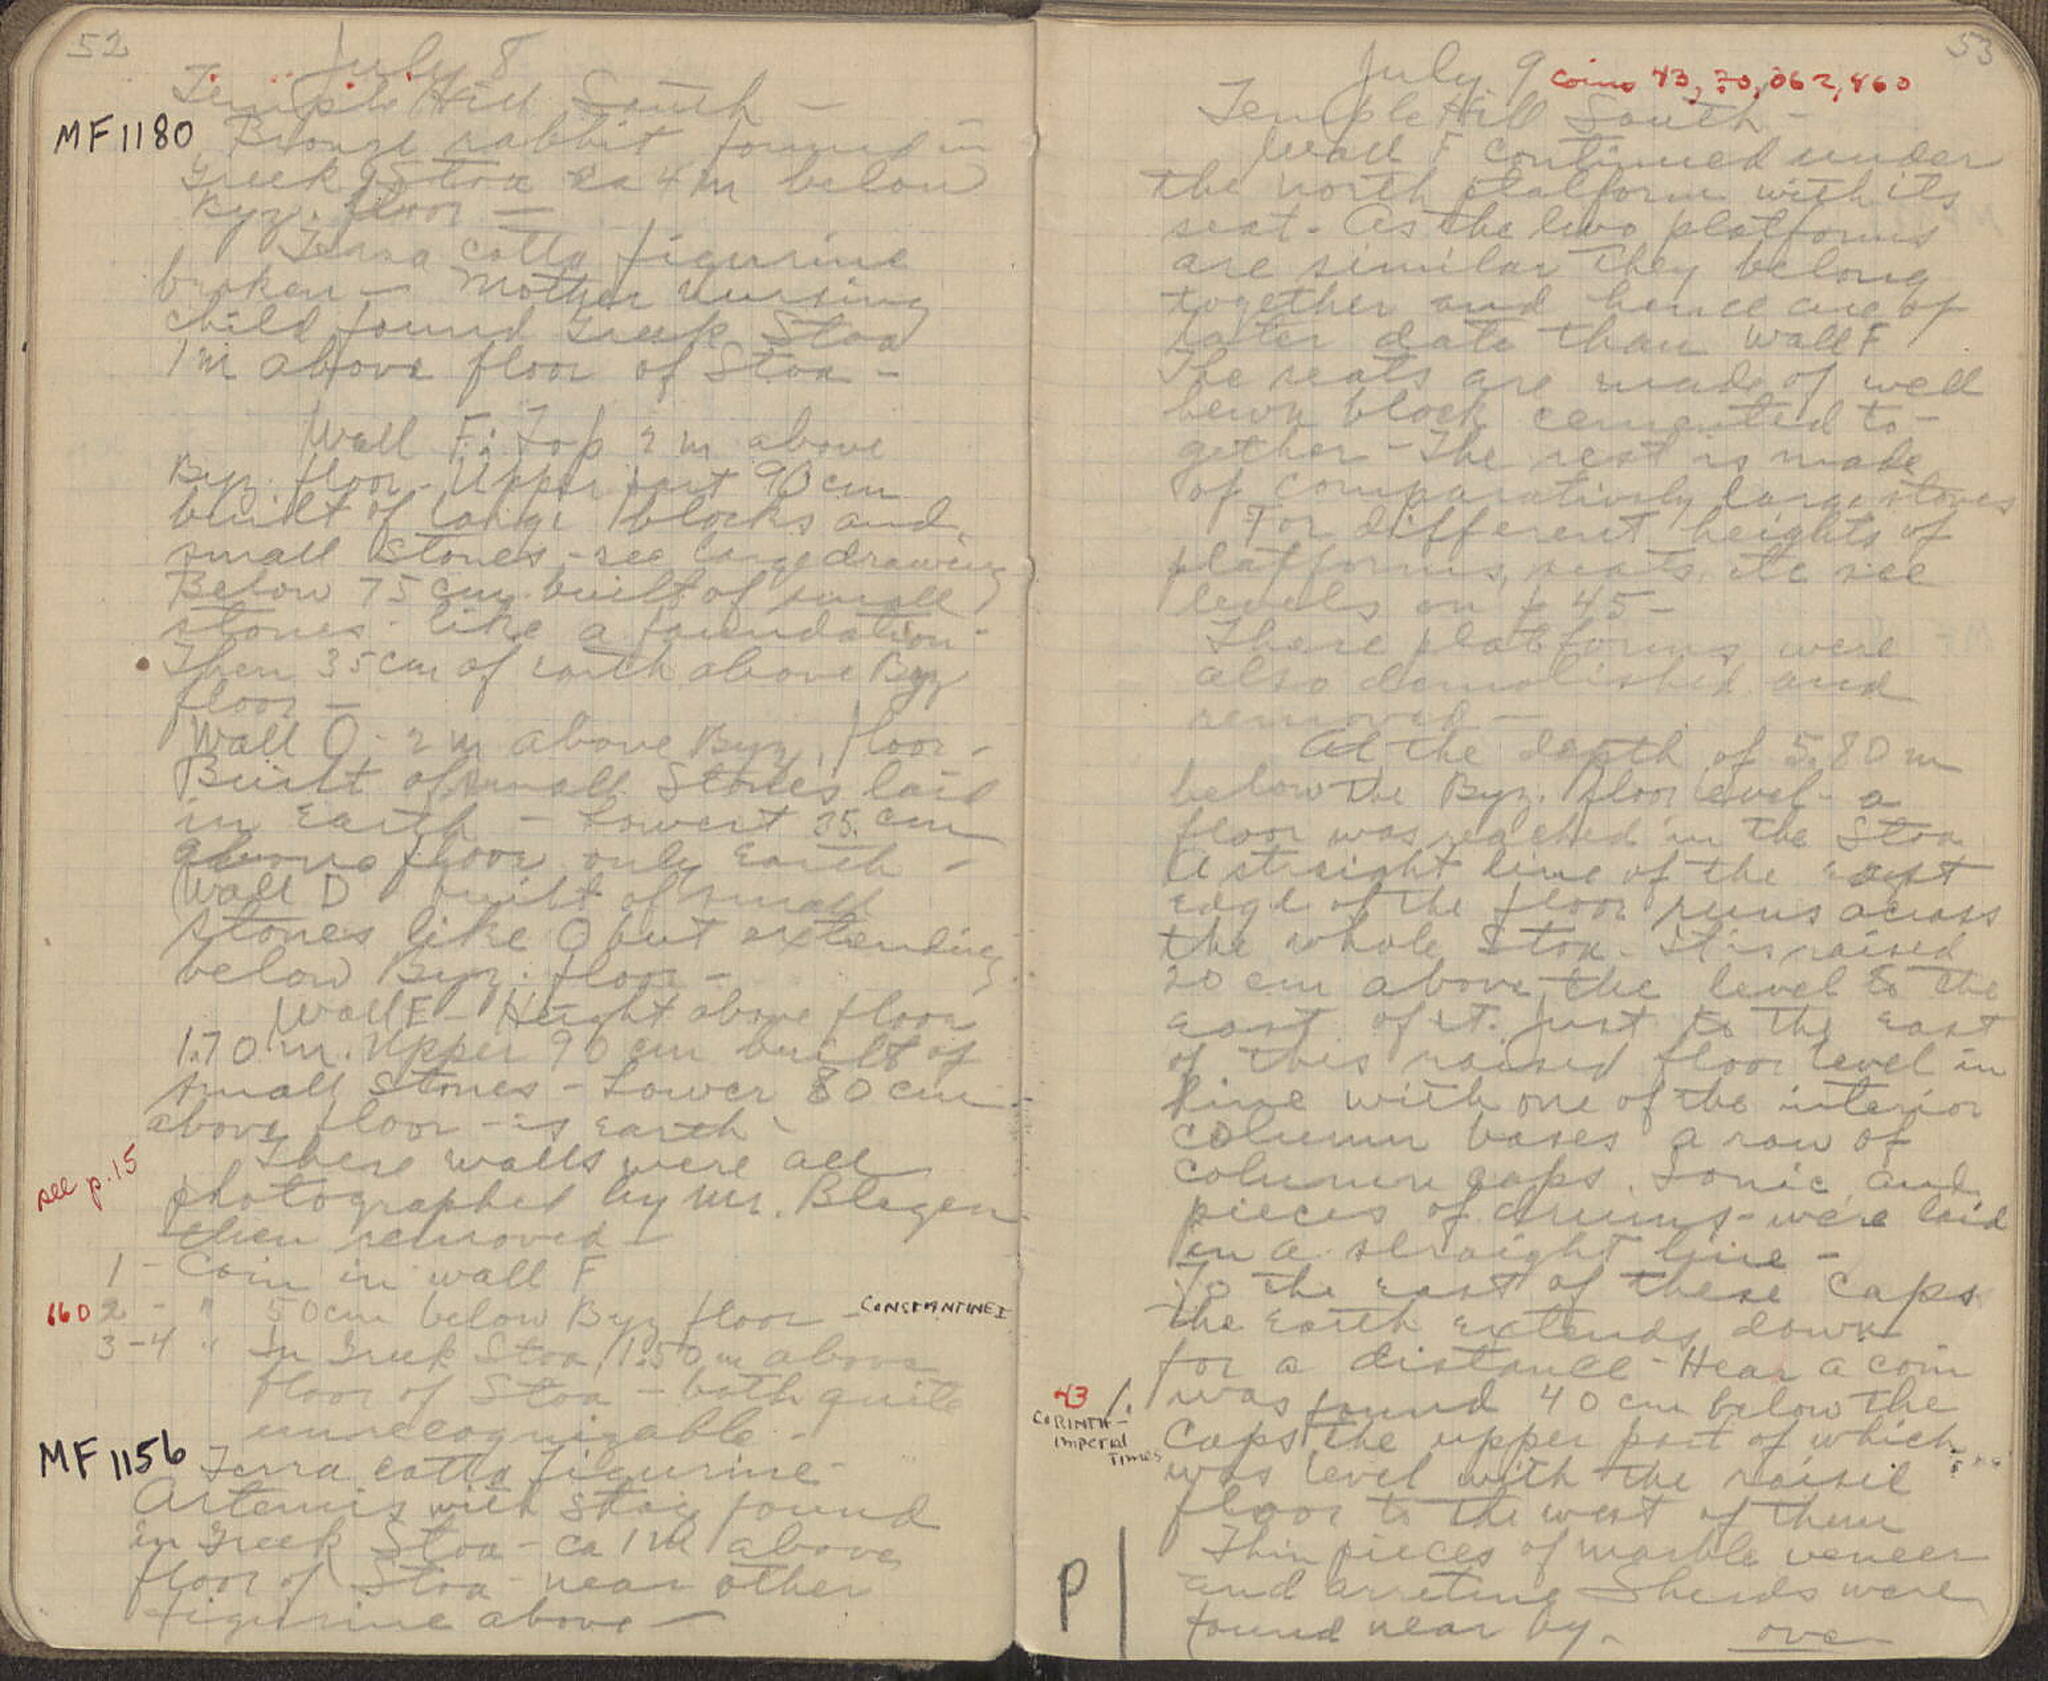 52
July 8
Temple Hill South -
MF1180 Bronze rabbit found in
Greek Stoa ca 4 m below
Byz. floor -
Terra cotta figurine
broken - Mother nursing
child found Greek Stoa
1 m above floor of Stoa -
Wall F: Top 2 m above
Byz. floor - Upper part 90 cm
built of large blocks and
small stones - see large drawing
Below 75 cm built of small
stones - like a foundation -
Then 35 cm of earth above Byz
floor -
Wall O - 2 m above Byz. floor -
Built of small stones laid
in earth - Lowest 35 cm
above floor only earth -
Wall D built of small
stones like O but extending
below Byz. floor -
Wall E - Height above floor
1.70 m. Upper 90 cm built of
small stones - Lower 80 cm
above floor - is earth -
see p. 15
These walls were all
photographed by Mr. Blegen
then removed -
1 - Coin in wall F
160 2 - " 50 cm below Byz floor - CONSTANTINE I
3-4 " In Greek Stoa 1.50 m above
floor of Stoa - both quite
unrecognizable -
MF 1156 Terra cotta figurine -
Artemis with stag found
in Greek Stoa - ca 1 M above
floor of Stoa - near other
figurine above -
53
July 9 Coins 43, 70, 062, 460
Temple Hill South -
Wall F continued under
the north platform with its
seat - As the two platforms
are similar they belong
together and hence are of
later date than Wall F
The seats are made of well
hewn block cemented to-
gether - The rest is made
of comparatively large stones
For different heights of
platforms, seats, etc see
levels on p 45 -
These platforms were
also demolished and
removed -
At the depth of 5.80 m
below the Byz. floor level - a
floor was reached in the Stoa
A straight line of the east
edge of the floor runs across
the whole Stoa - It is raised
20 cm above the level to the
east of it. Just to the east
of this raised floor level in
line with one of the interior
column bases a row of
column caps, Ionic, and
pieces of drums - were laid
in a straight line -
To the east of these caps
the earth extends down
for a distance - Hear a coin
43 1. was found 40 cm below the
CORINTH - Imperial Times
caps the upper part of which
was level with the raised
floor to the west of them
Thin pieces of marble veneer
P
and arretine sherds were
found near by -
over